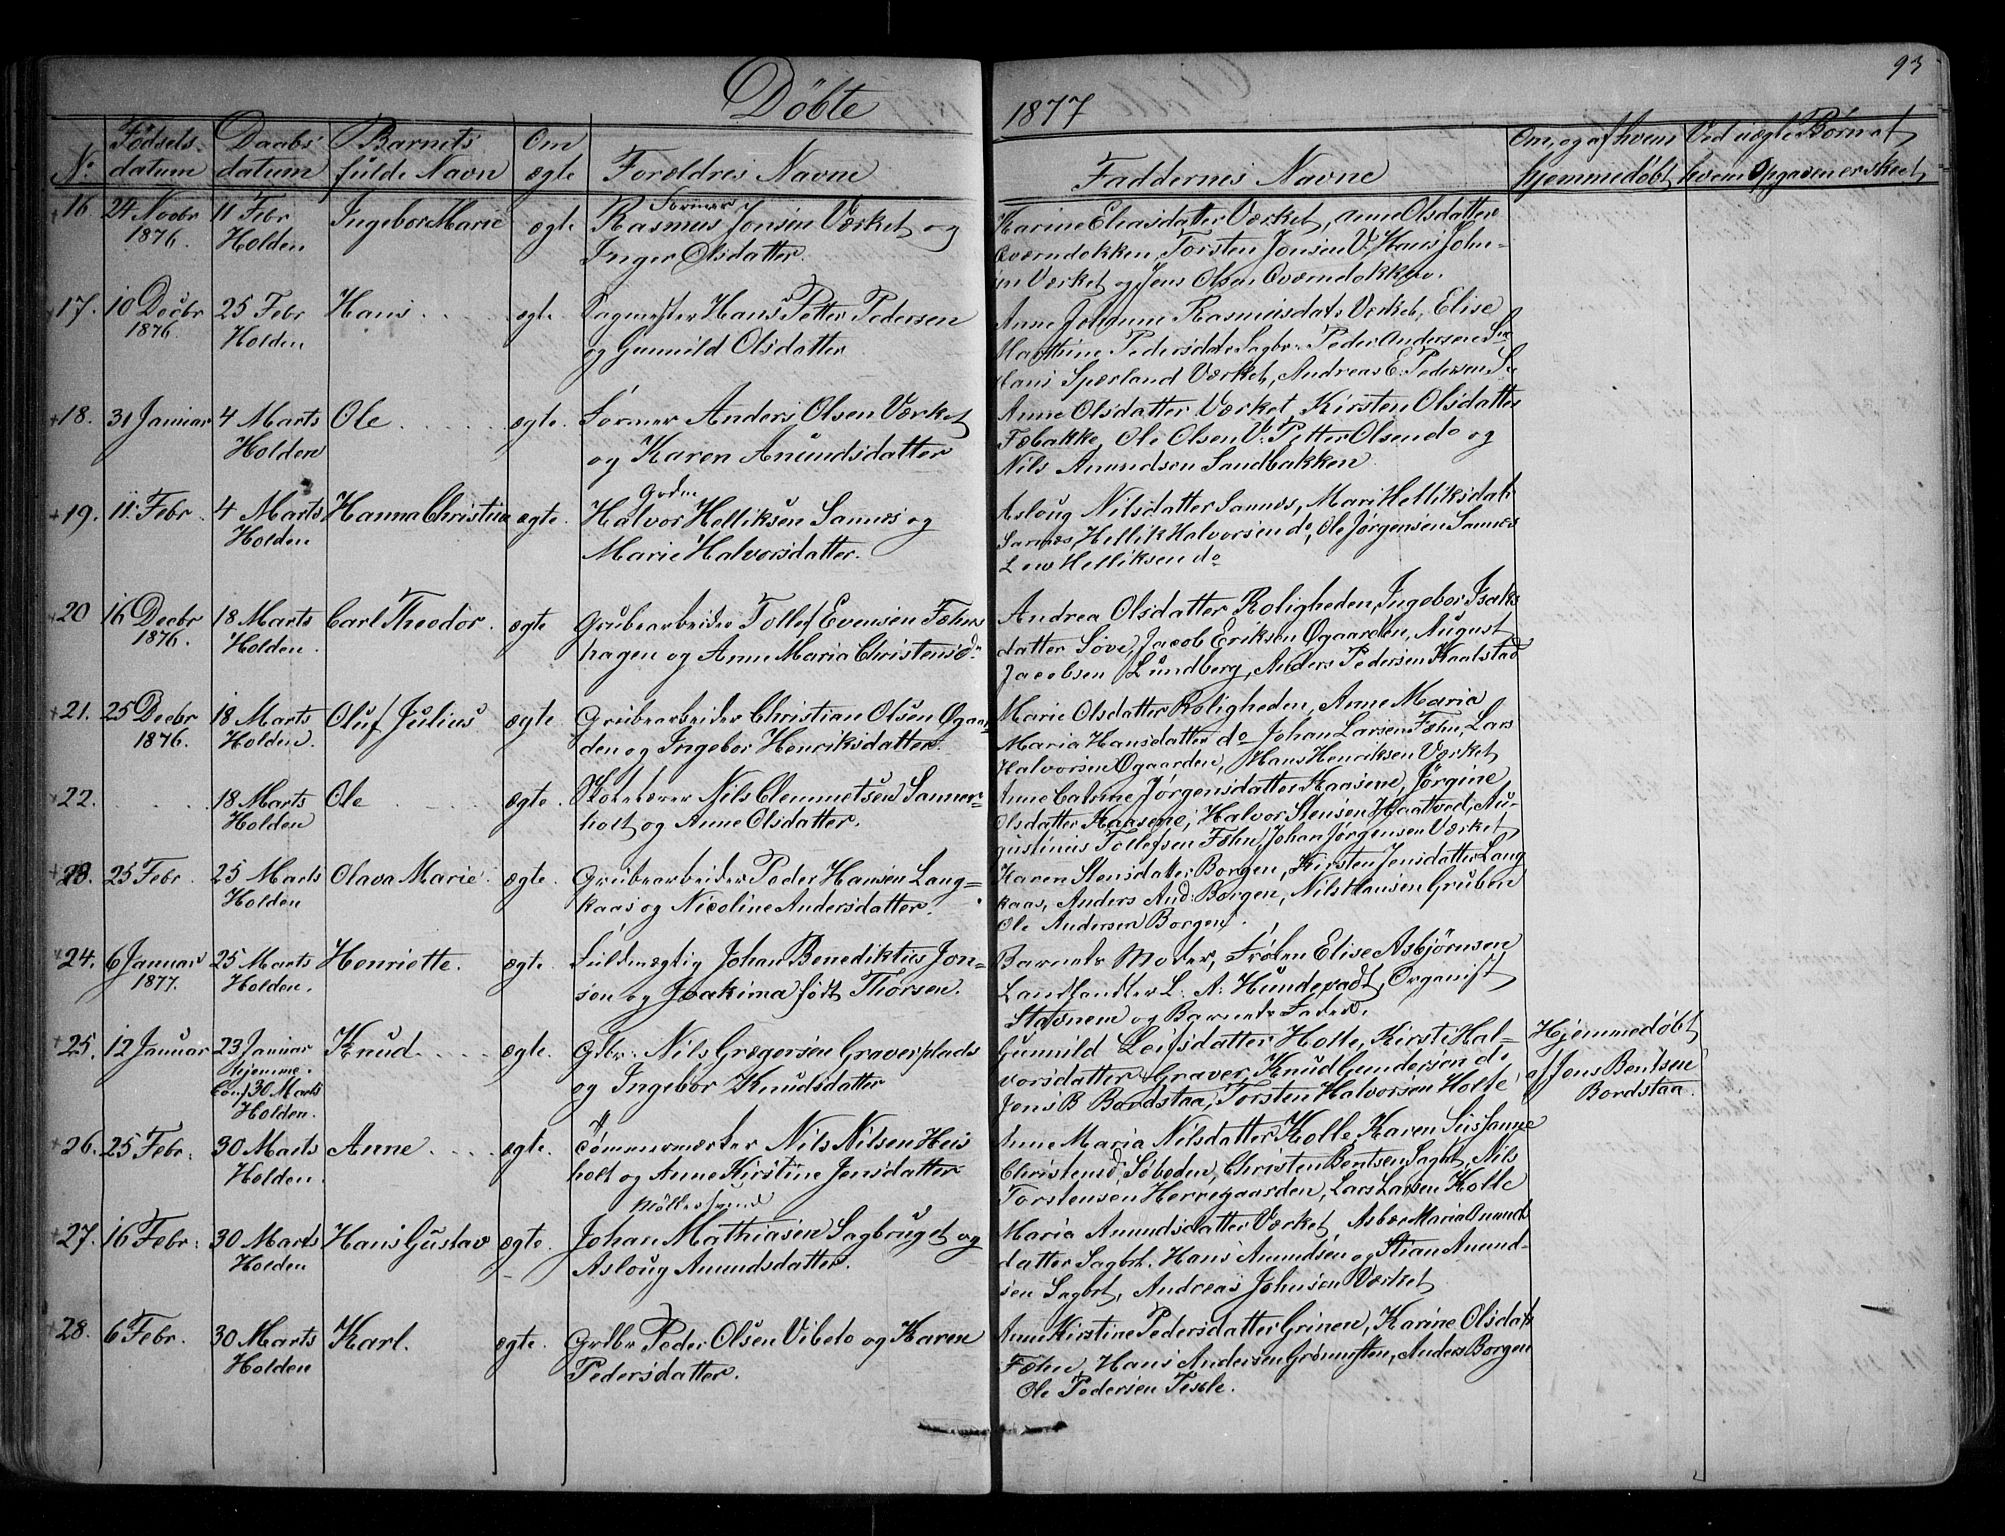 93
Döbte
1877
No
Fødsels-
datum
Daabs
datum
Barnets
fulde Navn
Om
ægte
Forældres Navne
Faddernes Navne
Om, og af hvem
hjemmedøbt
Ved uægte Børn at
hvem Opgaven er skeet
16 24 Novbr 11 Febr Ingebor Marie ægte Rasmus Jonsen Værket og
Former
1876. Holden Inger Olsdatter.
Karine Eliasdatter Værket, Anne Olsdatter
Qværndokken, Torsten Jonsen V. Hans John-
sen Værket og Jens Olsen Qværndokken.
17. 10 Decbr 25 Febr Hans ægte Sagmester Hans Petter Pedersen
1876. Holden og Gunnild Olsdatter
Anne Johanne Rasmusdatr Værket, Elise
Marthine Pedersdatr Sagbr. Peder Andersen
Hans Sperland Værket, Andreas E. Pedersen
18. 31 Januar 4 Marts Ole ægte. Former Anders Olsen Værket
Holden og Karen Anundsdatter
Anne Olsdatter Værket, Kirsten Olsdatter
Fæbakke, Ole Olsen V. Petter Olsen do og
Nils Anundsen Sandbakken
19. 11. Febr. 4 Marts Hanna Christine ægte. Halvor Helliksen Sannes og
Grdm
Holden Marie Halvorsdatter.
Asloug Nilsdatter Sannes, Mari Helliksdatr
Sannes, Hellik Halvorsen do, Ole Jørgensen Sannes
Lew Helliksen do
20 16 Decbr 18 Marts Carl Theodor. ægte Grubearbeider Tollef Evensen Fæhns
1876. Holden. hagen og Anne Maria Christensd.
Andrea Olsdatter Roligheden, Ingebor Isaks
datter Sove, Jacob Eriksen Øgaarden, August
Jacobsen Lundberg, Anders Pedersen Kaalstad
21. 25 Decbr 18 Marts Oluf Julius ægte. Grubearbeider Christian Olsen Øgaar
1876. Holden. den og Ingebor Henriksdatter.
Marie Olsdatter Roligheden, Anne Maria
Maria Hansdatter do Johan Larsen Fæhn, Lars
Halvorsen Øgaarden, Hans Henriksen Værket
22. 18 Marts Ole ægte. Nils Clemmetsen Sanner-
Holden holt og Anne Olsdatter.
Anne Catrine Jørgensdatter Kaasene, Jørgine
Olsdatter Kaasene, Halvor Stensen Haatved, Au-
gustinus Tollefsen Fæhn, Johan Jørgensen Værket
23. 25 Febr 25 Marts Olava Marie. ægte. Grubearbeider Peder Hansen Lang-
Holden kaas og Nicoline Andersdatter.
Karen Stensdatter Borgen, Kirsten Jensdatter Lang
kaas, Anders And: Borgen, Nils Hansen Gruben
Ole Andersen Borgen.
24. 6 Januar 25 Marts Henriette. ægte. Fuldmægtig Johan Benediktus Jon-
1877. Holden. sen og Joakima født Thorsen.
Barnets Moder, Frøken Elise Asbjørnsen
Landhandler L. A. Hundevadt, Organist
Stavnem og Barnets Fader.
25. 12 Januar 23 Januar Knud ægte. Gdbr. Nils Grægersen Graver plads
Hjemme.
Conf 30 Marts og Ingebor Knudsdatter
Holden.
Gunnild Leifsdatter Holte, Kirsti Hal-
vorsdatter Graver, Knud Gundersen do
Jens B Bordstaa, Torsten Halvorsen Holte
Hjemmedøbt
af Jens Bentsen
Bordstaa.
26. 25 Febr. 30 Marts Anne ægte. Tømmermærker Nils Nilsen Heis
Holden. holt og Anne Kirstine Jensdatter
Anne Maria Nilsdatter Kolle, Karen Susanne
Christensd. Søboden, Christen Bentsen Sagbt, Nils
Torstensen Herregaarden, Lars Larsen Kolle
27. 16 Febr. 30 Marts Hans Gustav ægte. Johan Mathiasen Sagbruget og
Møllersvend
Holden Asloug Anundsdatter.
Maria Anundsdatter Værket, Asbær Maria Anunds
datter Sagbt. Hans Anundsen og Stian Anund-
sen Sagbrt, Andreas Johnsen Værket
28. 6 Febr. 30 Marts Karl. ægte. Grdbr Peder Olsen Vibeto og Karen
Holden Pedersdatter.
Anne Kirstine Pedersdatter Grinen, Karine Olsdatr
Fæhn, Hans Andersen Grønnsten, Anders Borgen
Ole Pedersen Tesele.